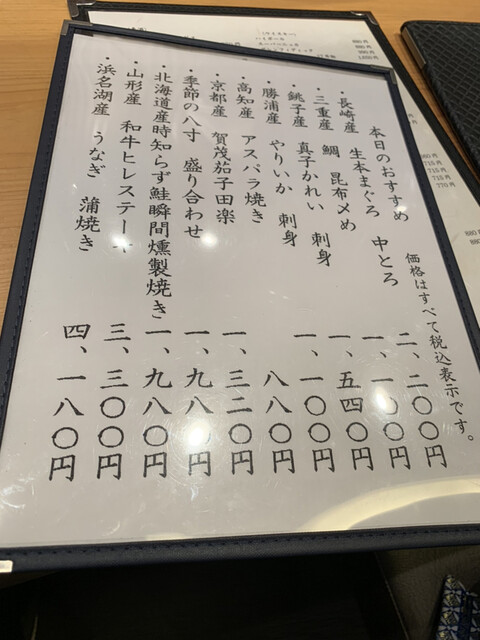 本日のおすすめ
価格はすべて税込表示です。
・長崎産 生本まぐろ 中とろ 二、二〇〇円
・三重産 鯛 昆布〆め 一、一〇〇円
・銚子産 真子かれい 刺身 一、五四〇円
・勝浦産 やりいか 刺身 一、一〇〇円
・高知産 アスパラ焼き 八八〇円
・京都産 賀茂茄子田楽 一、三二〇円
・季節の八寸 盛り合わせ 一、九八〇円
・北海道産時知らず鮭瞬間燻製焼き 一、九八〇円
・山形産 和牛ヒレステーキ 三、三〇〇円
・浜名湖産 うなぎ 蒲焼き 四、一八〇円
(ウイスキー)
ハイボール